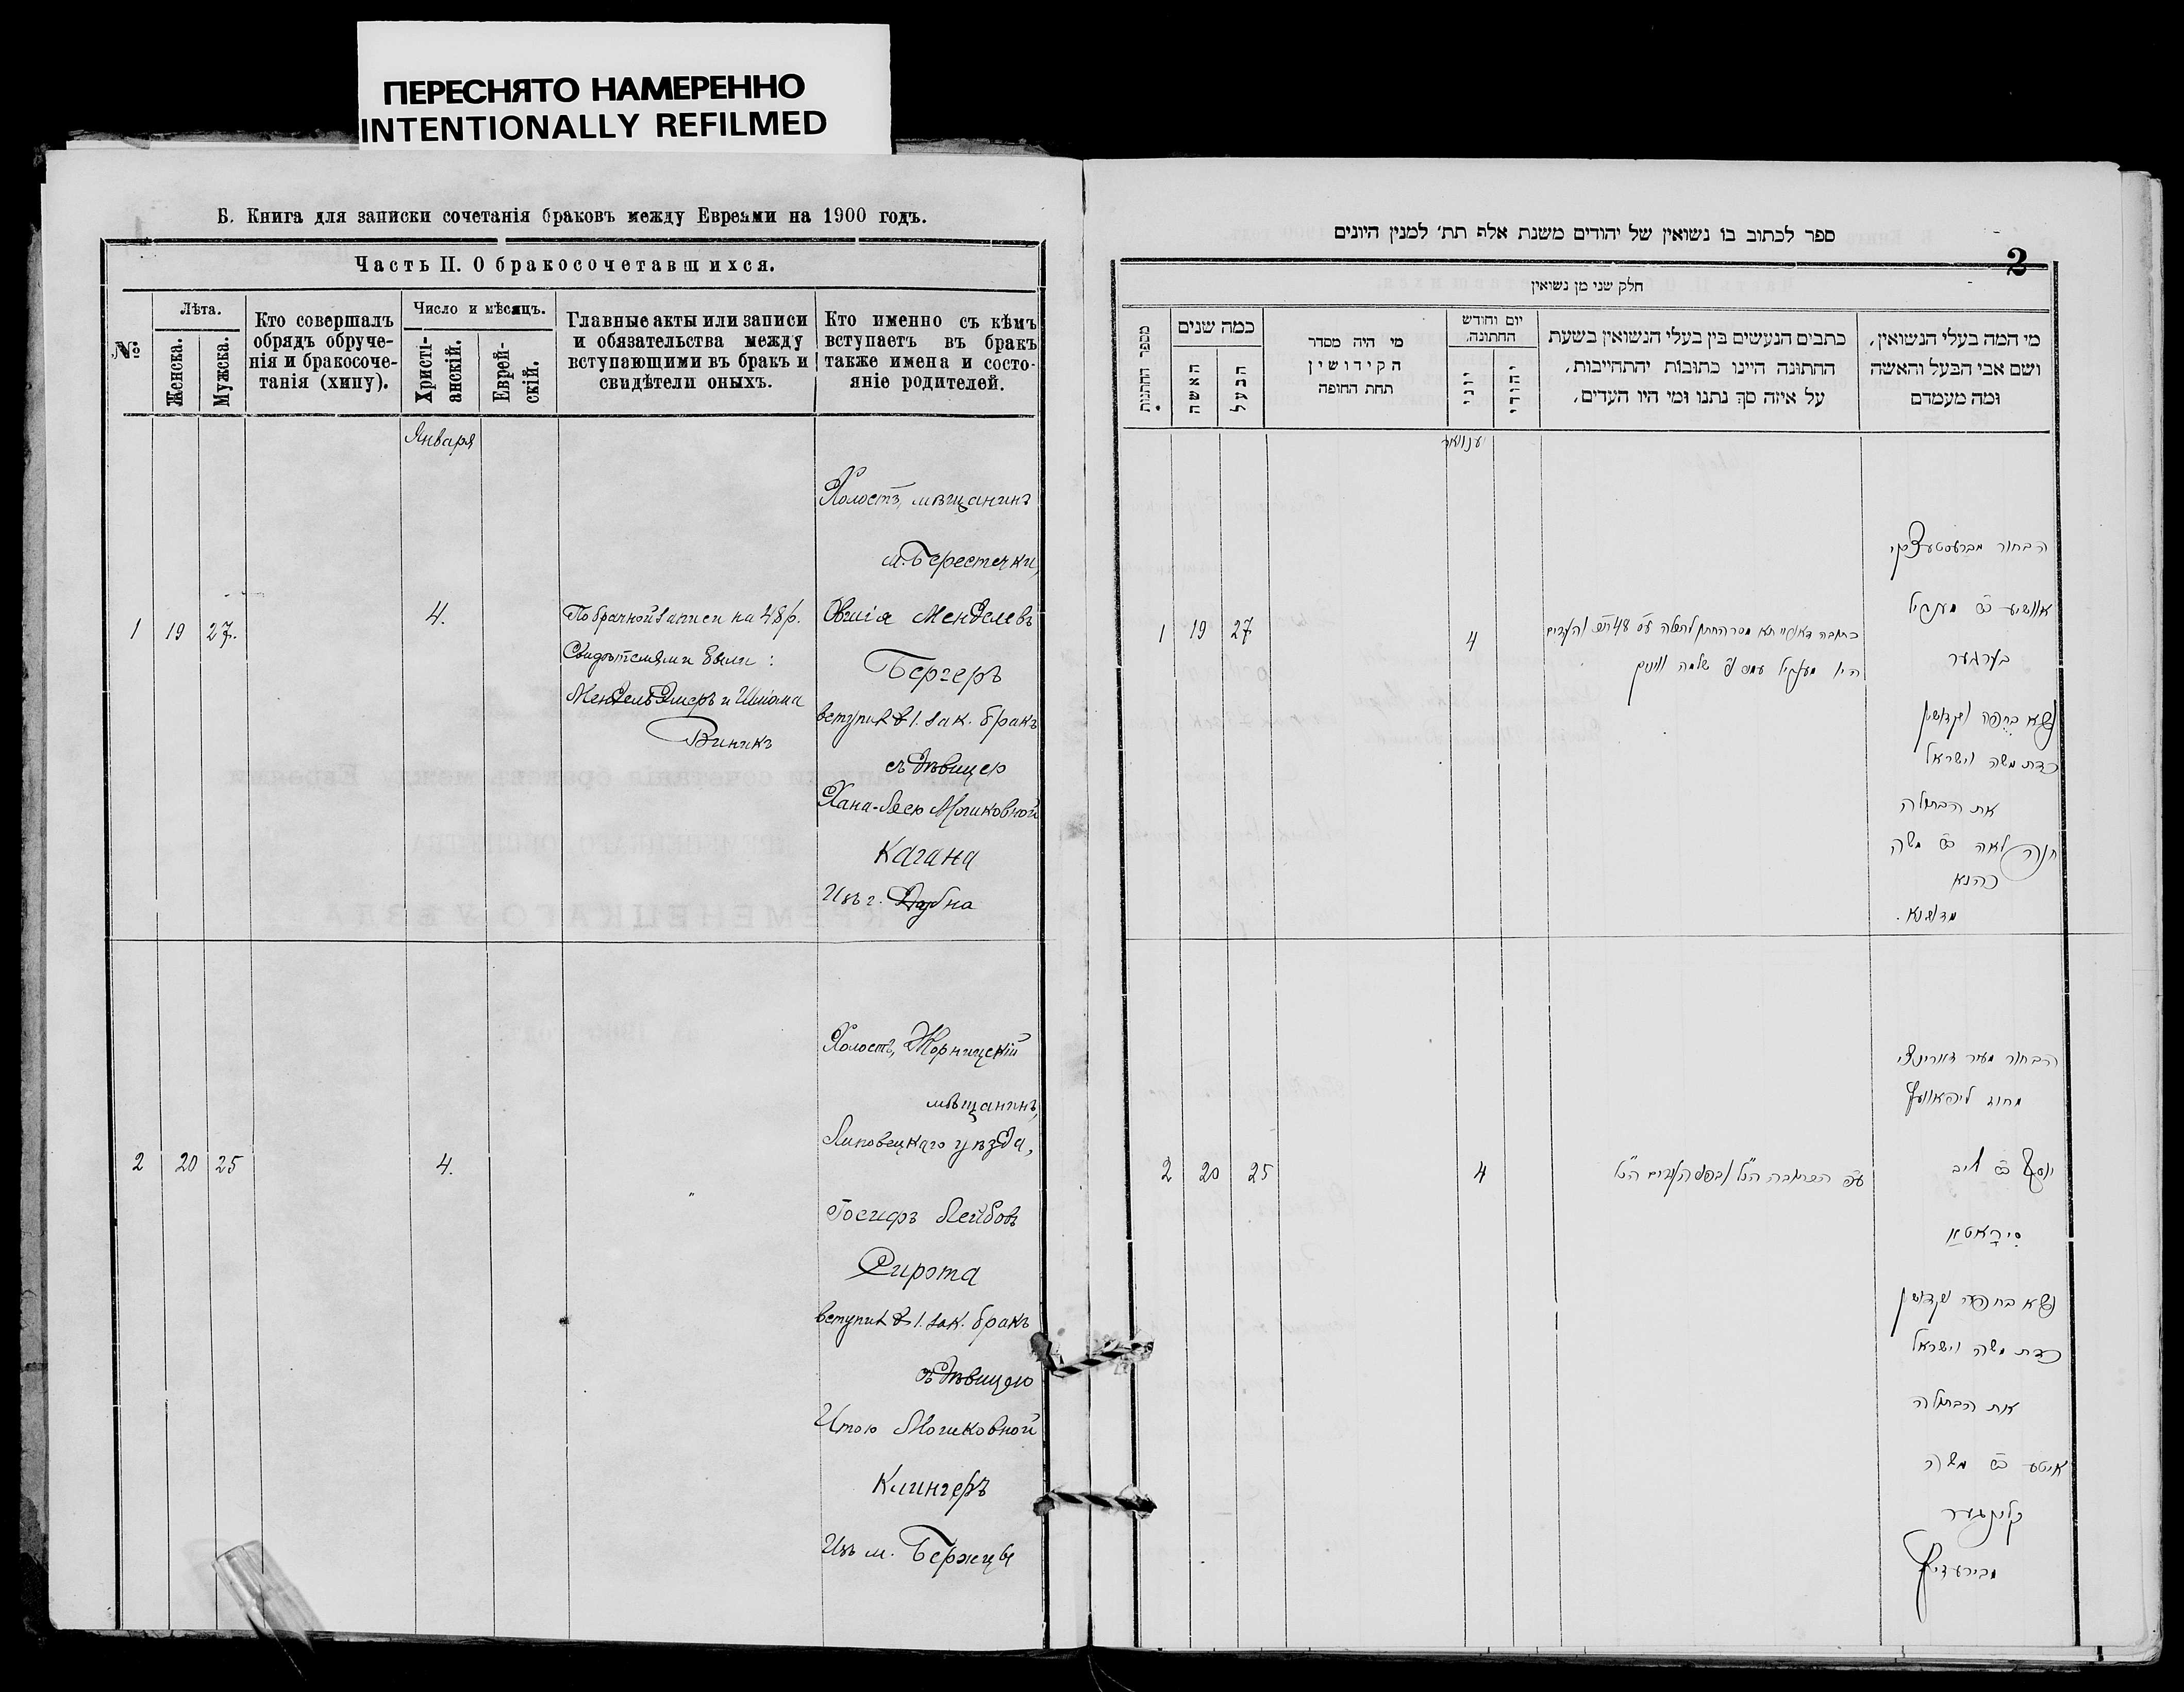 ПЕРЕСНЯТО НАМЕРЕННО
INTENTIONALLY REFILMED
Б. Книга для записки сочетанія браковъ между Евреями на 1900 годъ.
Часть II. О бракосочетавшихся.
№
Лѣта.
Женска.
Мужска.
Кто совершалъ
обрядъ обруче-
нія и бракосоче-
танія (хипу).
Число и мѣсяцъ.
Христі-
анскій.
Еврей-
скій.
Главные акты или записи
и обязательства между
вступающими въ бракъ и
свидѣтели оныхъ.
Кто именно съ кѣмъ
вступаетъ въ бракъ
также имена и состо-
яніе родителей.
Января
1 19 27. 4.
По брачной записи на 48 р.
Свидѣтелями были:
Мендель и Шлома
Виникъ
Холостъ, мѣщанинъ
м. Берестечки,
Овшія Менделевъ
Бергеръ
вступил в 1. зак. бракъ
съ дѣвицею
Хана-Леею Мошковной
Кагана
Изъ г. Дубна
2 20 25 4. "
Холостъ, Жорницкій
мѣщанинъ,
Липовецкаго уѣзда,
Іосифъ Лейбовъ
Сирота
вступил в 1. зак. бракъ
съ дѣвицею
Итою Мошковной
Клингеръ
Изъ м. Бережцы
ספר לכתוב בו נשואין של יהודים משנת אלף תת׳ למנין היונים
2
חלק שני מן נשואין
מספר החתונות
כמה שנים
האשה
הבעל
מי היה מסדר
הקידושין
תחת החופה
יום וחודש
החתונה
יוני
יהודי
כתבים הנעשים בין בעלי הנשואין בשעת
החתונה היינו כתובות יהתחייבות,
על איזה סך נתנו ומי היו העדים,
מי המה בעלי הנשואין,
ושם אבי הבעל והאשה
ומה מעמדם
יענוואר
1 19 27 4
היו מענדיל
שלמה וויניק
הבחור
אוושיע מענדיל
בערגער
נשא בחופה וקדושין
כדת משה וישראל
את הבתולה
חנה לאה משה
כהנא
מדובנא.
2 20 25 4
הבחור מעיר
מחוז ליפאוועץ
יוסף ליב
סיראטא
נשא בחופה וקדושין
כדת משה וישראל
את הבתולה
איטע משה
קלינגער